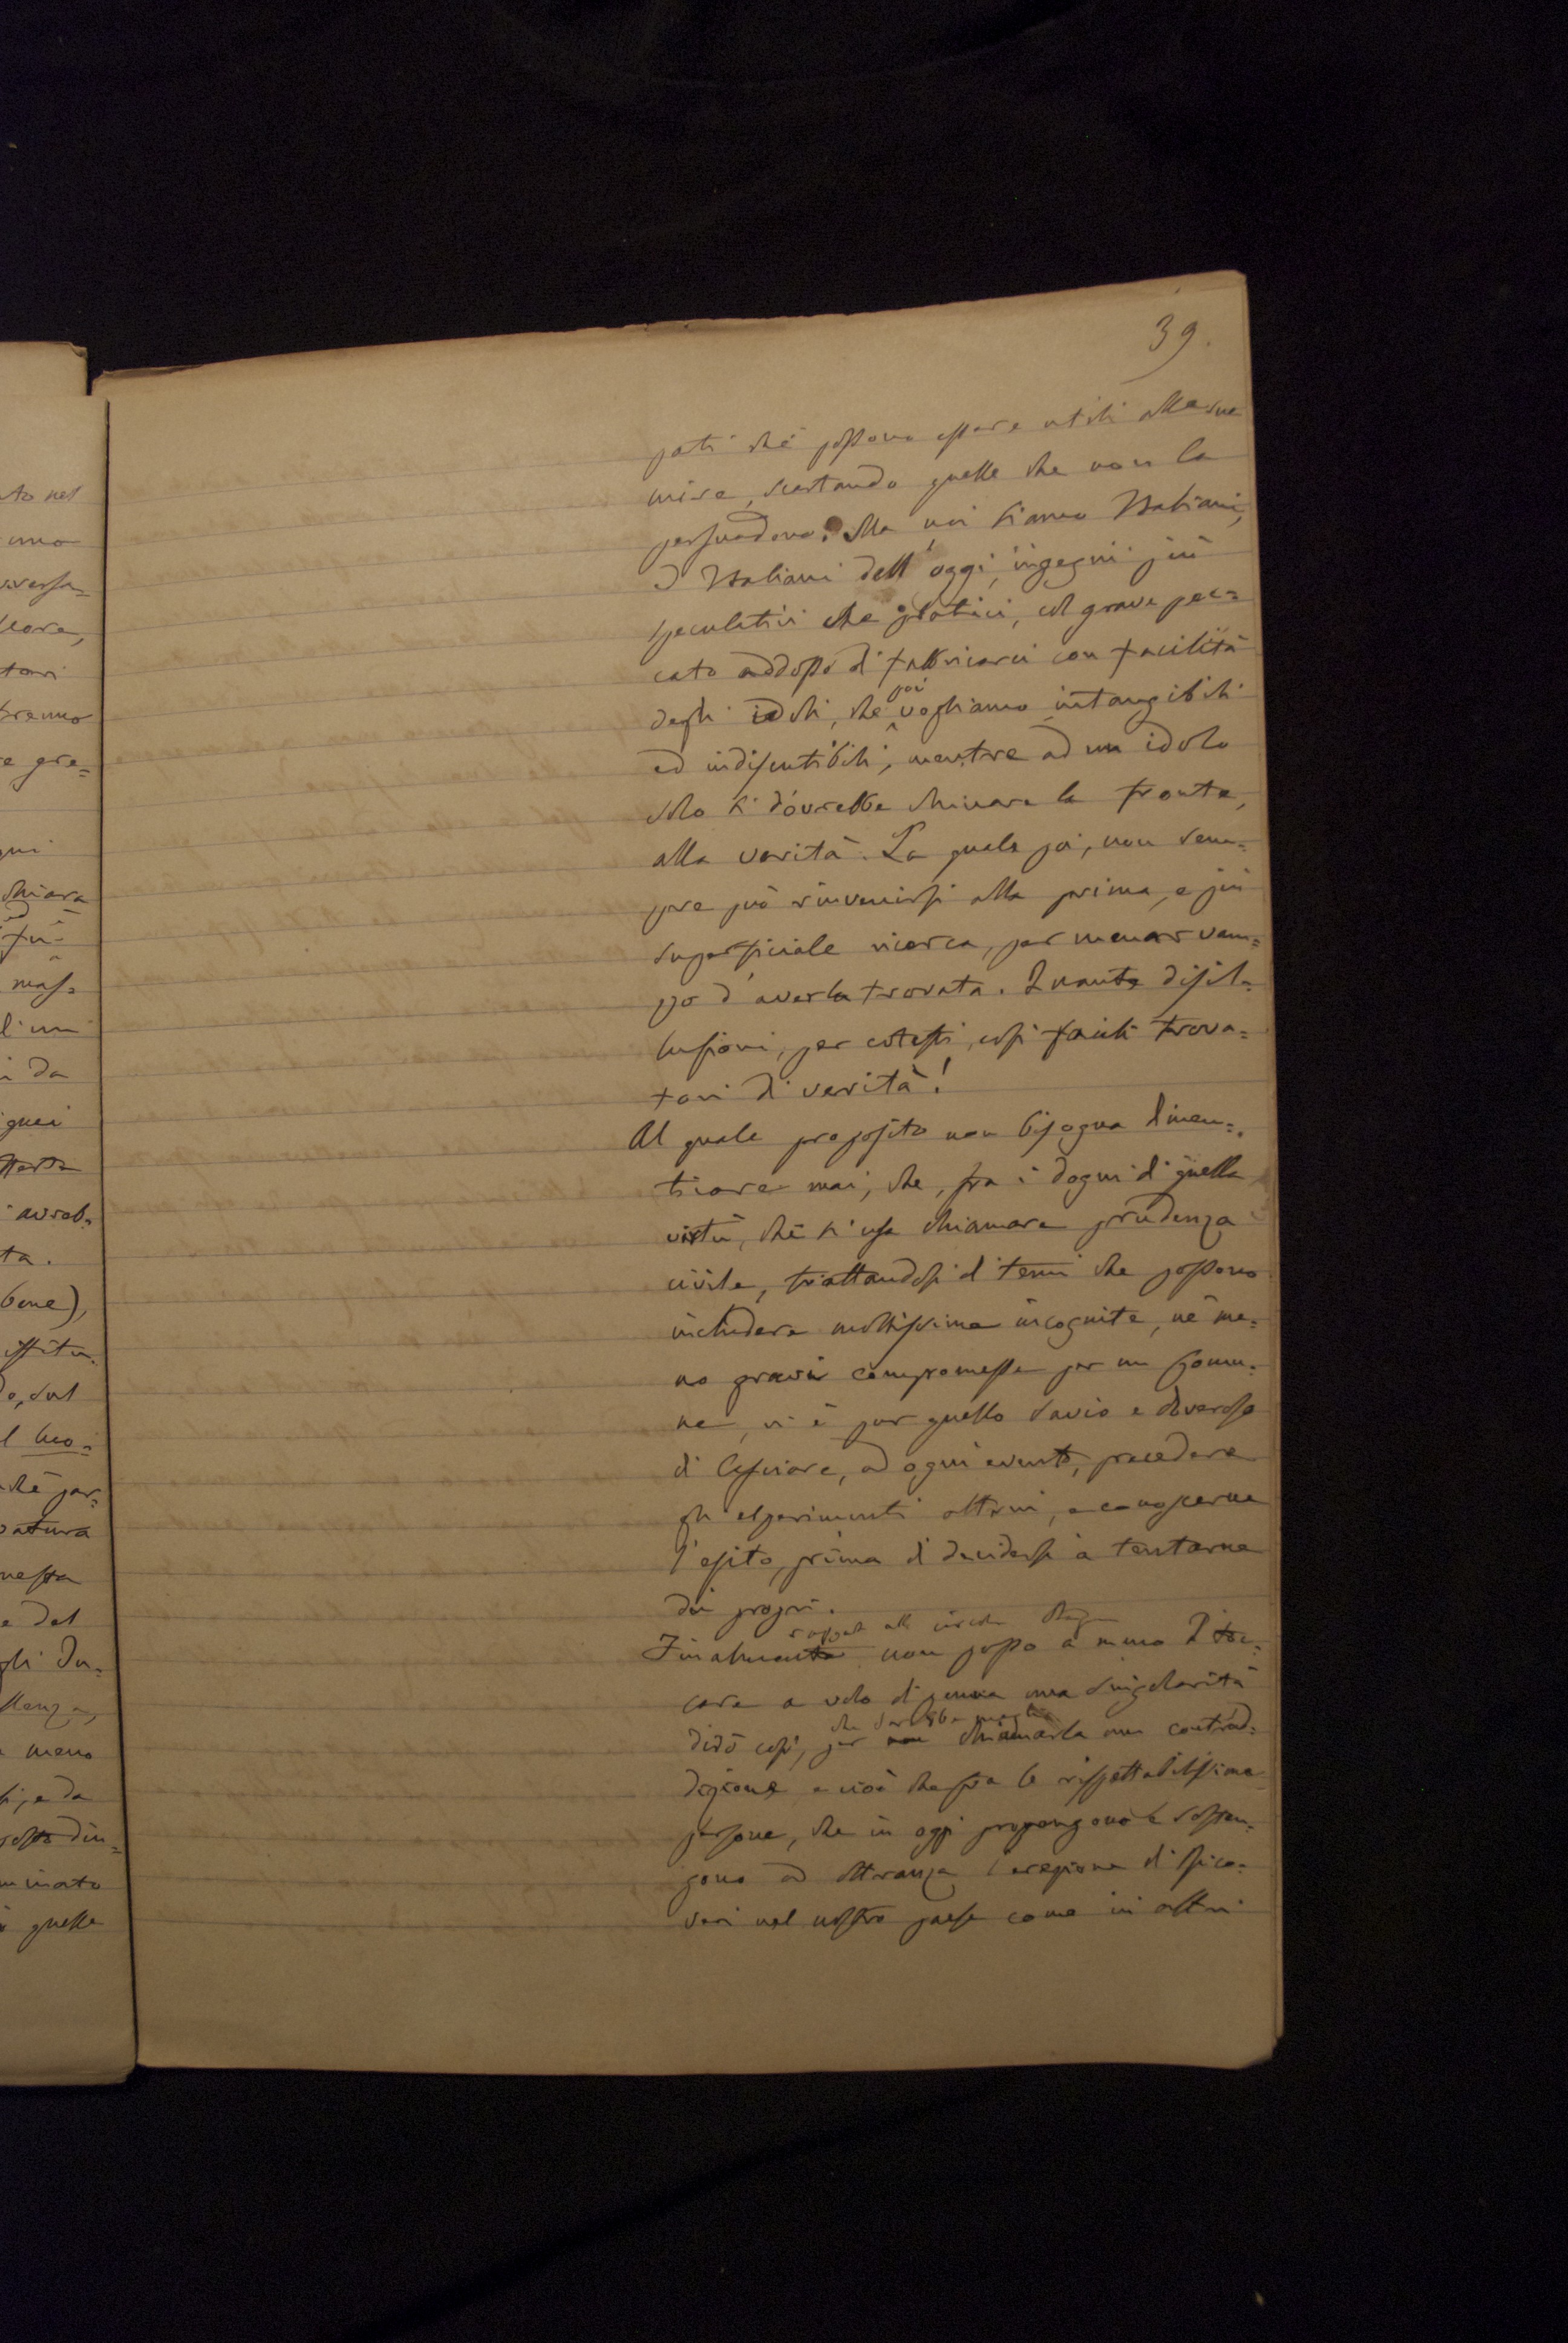 39.
pati che possono essere utili alle sue
mire, scartando quelle che non la
persuadono. Ma noi siamo Italiani,
e Italiani dell'oggi, ingegni più
speculativi che pratici, col grave pec=
cato addosso di fabbricarci con facilità
degli idoli, che poi vogliamo intangibili
ed indiscutibili, mentre ad un idolo
solo si dovrebbe chinare la fronte,
alla verità. La quale poi, non sem=
pre può rinvenirsi alla prima, e più
superficiale ricerca, per menar vam=
po d'averla trovata. Quante disil=
lusioni, per cotesti, così facili trova=
tori di verità!
Al quale proposito non bisogna dimen=
ticare mai, che, fra i dogmi di quella
virtù, che si usa chiamare prudenza
civile, trattandosi di temi che possono
includere moltissime incognite, nè me=
no gravi compromesse per un Comu=
ne, vi è pur quello savio e doveroso
di lasciare, ad ogni evento, precedere
gli esperimenti altrui, e conoscerne
l'esito, prima di decidersi a tentarne
dei propri.
Finalmente non posso a meno di toc=
care a volo di penna una singolarità
dirò così, per non che sarebbe meglio chiamarla una contrad=
dizione e cioè che fra le rispettabilissime
persone, che in oggi propongono e sosten=
gono ad oltranza l'erezione di sico=
veri nel nostro paese come in altri
to nel
uno
tori
remo
e gra=
qui
chiara
mas=
l'un
i da
quei
ta.
bene),
do, sul
l luo=
chè par=
natura
e del
gli In=
meno
si, e da
minato
quelle